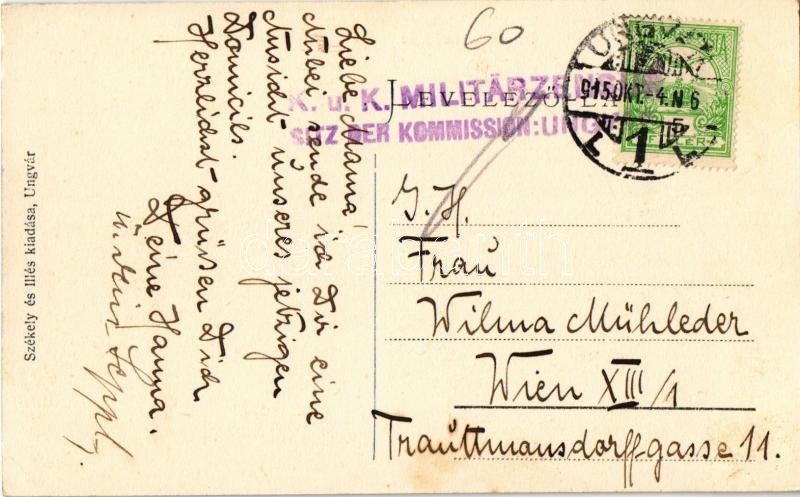 60
LEVELEZŐLAP
K. u. K. MILITÄRZENSUR
SITZ DER KOMMISSION: UNG
915 OKT. 4. N 6
1
Liebe Mama!
Anbei sende ich Dir eine
Ansicht unseres jetzigen
Domicils.
Herzlichst grüssen Dich
Deine Hanna.
u. dein Seppl.
J. H.
Frau
Wilma Mühleder
Wien XIII/1
Trauttmansdorffgasse 11.
Székely és Illés kiadása, Ungvár
darabanth